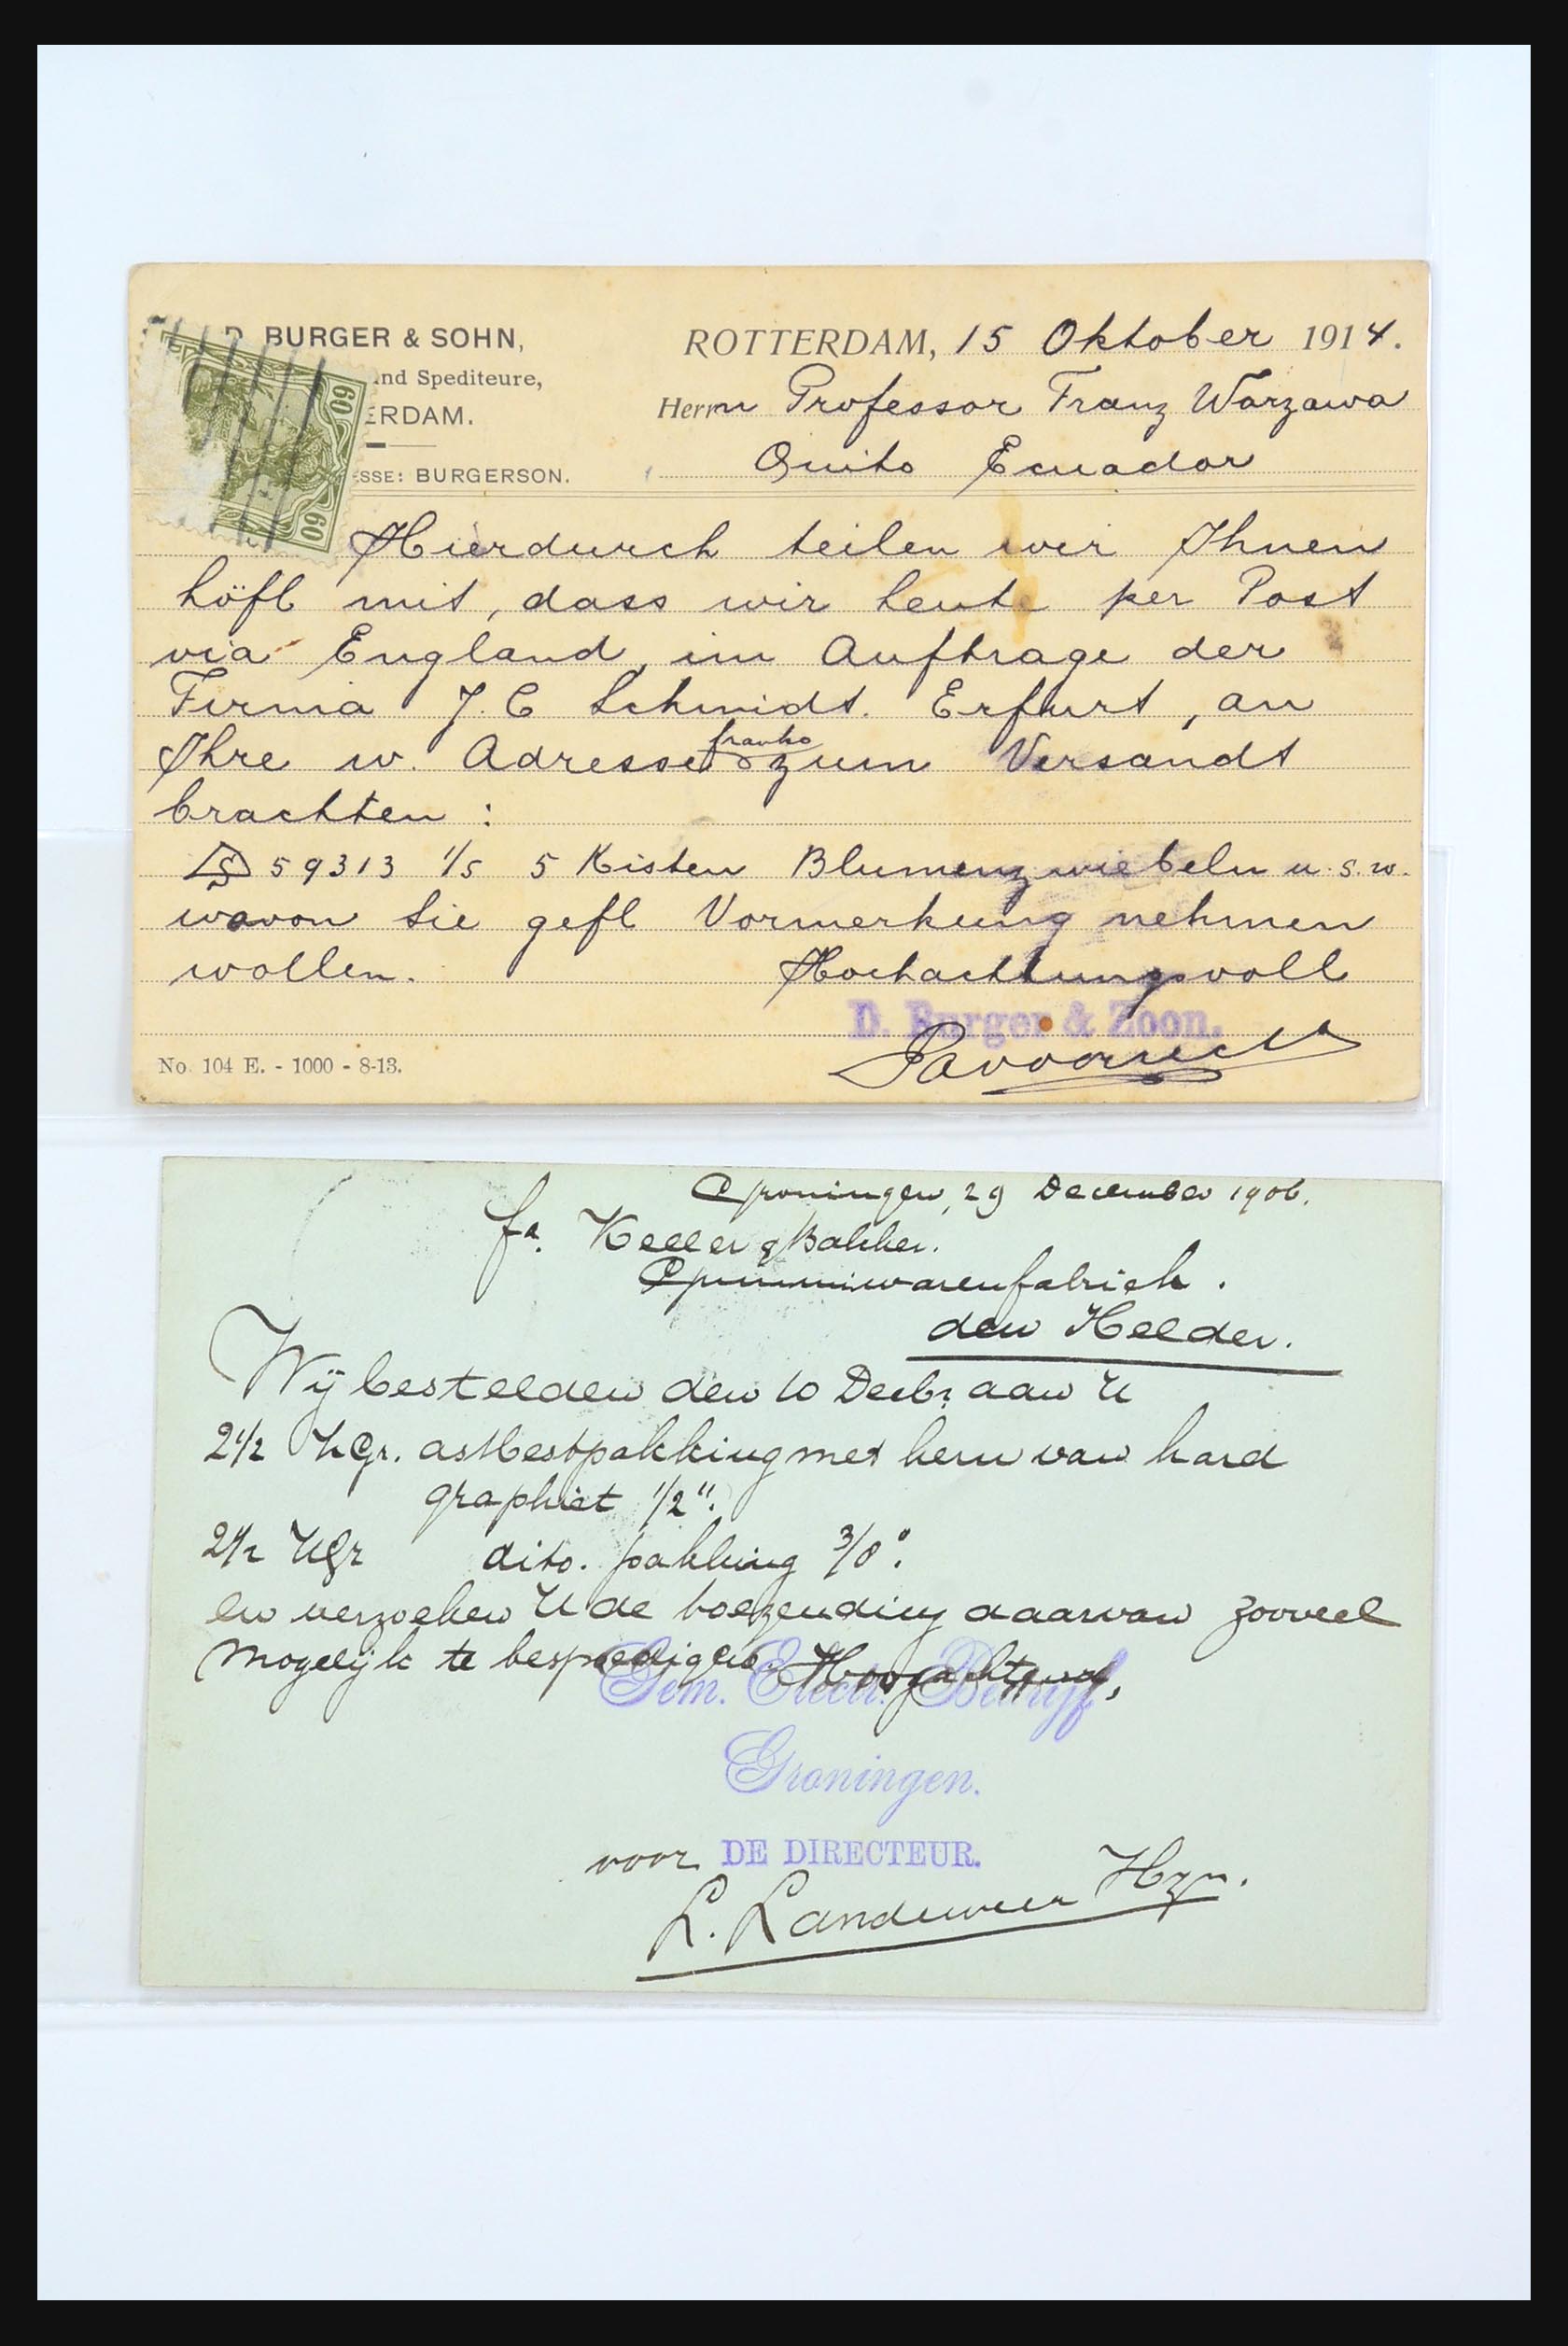 D. BURGER & SOHN,
und Spediteure,
ERDAM.
ESSE: BURGERSON.
60
60
ROTTERDAM, 15 Oktober 1914.
Herrn Professor Franz Warzawa
Quito Ecuador
Hierdurch teilen wir Ihnen
höfl mit, dass wir heute per Post
via England, im Auftrage der
Firma J. C Schmidt. Erfurt, an
Ihre w. Adresse franko zum Versandt
brachten :
S 59313 1/5 5 Kisten Blumenzwiebeln u. s. w.
wovon Sie gefl Vormerkung nehmen
wollen. Hochachtungsvoll
D. Burger & Zoon.
No. 104 E. - 1000 - 8-13.
Groningen, 29 December 1906.
fa. Keller & Bakker.
Gummiwarenfabriek.
den Helder.
Wij bestelden den 10 Decbr aan U
2 1/2 KGr. asbestpakking met kern van hard
graphiet 1/2".
2 1/2 KGr dito. pakking 3/8".
en verzoeken U de toezending daarvan zooveel
mogelijk te bespoedigen. Hoogachtend,
Gem. Electr. Bedrijf
Groningen.
voor DE DIRECTEUR.
L. Landeweer Hzn.